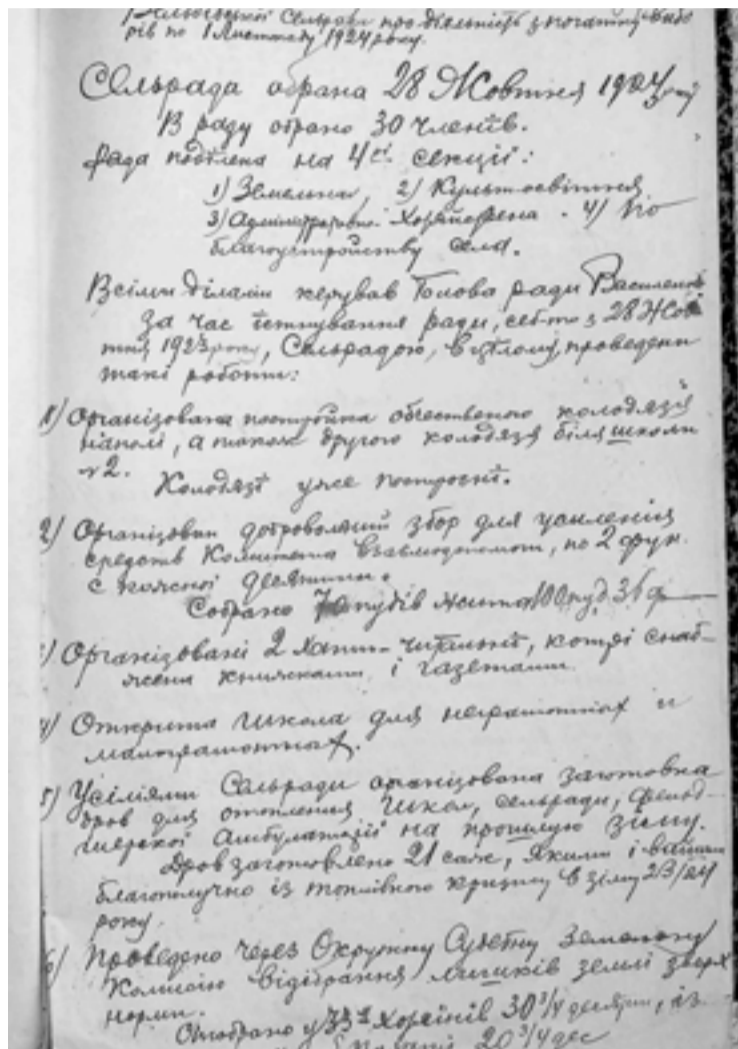 Сельради про діяльність з початку вибо-
рів по 1 Листопаду 1924 року.
Сельрада обрана 28 Жовтня 192
В раду обрано 30 членів.
Рада поділена на 4 секції:
1) Земельна, 2) Культосвітня
3) Административно 4) По
благоустройству села.
Всіми ділами керував Голова ради Василенко
За час існування ради, себ-то з 28 Жов
тня 1923 року, Сельрадою, в цілому, проведени
такі роботи:
1) Організована постройка общественого колодязя
на полі, а також другого колодязя біля школи
№2.
Колодязі уже построєні.
2) Організован добровольний збор для усиления
средств Комитета Взаємодопомоги, по 2 фун.
с кожної десятини.
Собрано пудів жита 100 пуд. 36 ф
Організовані 2 хати-читальні, котрі снаб-
жени книжками і газетами.
4) Открита школа для неграмотних и
малограмотних.
5) Усіліями Сельради організована заготовка
дров для отоплення школ, сельради, фельд-
шерської амбулаторії на прошлую зіму.
Дров заготовлено 21 саж, якими і вийшли
благополучно із топлівного кризису в зіму 23/24
року.
6) Проведено через Окружну Судебну Земельну
Комисію відібрання лишків землі зверх
норми.
Отобрано у 33 х Хозяїнів 30 3/4 десятин, із
20 3/4 дес